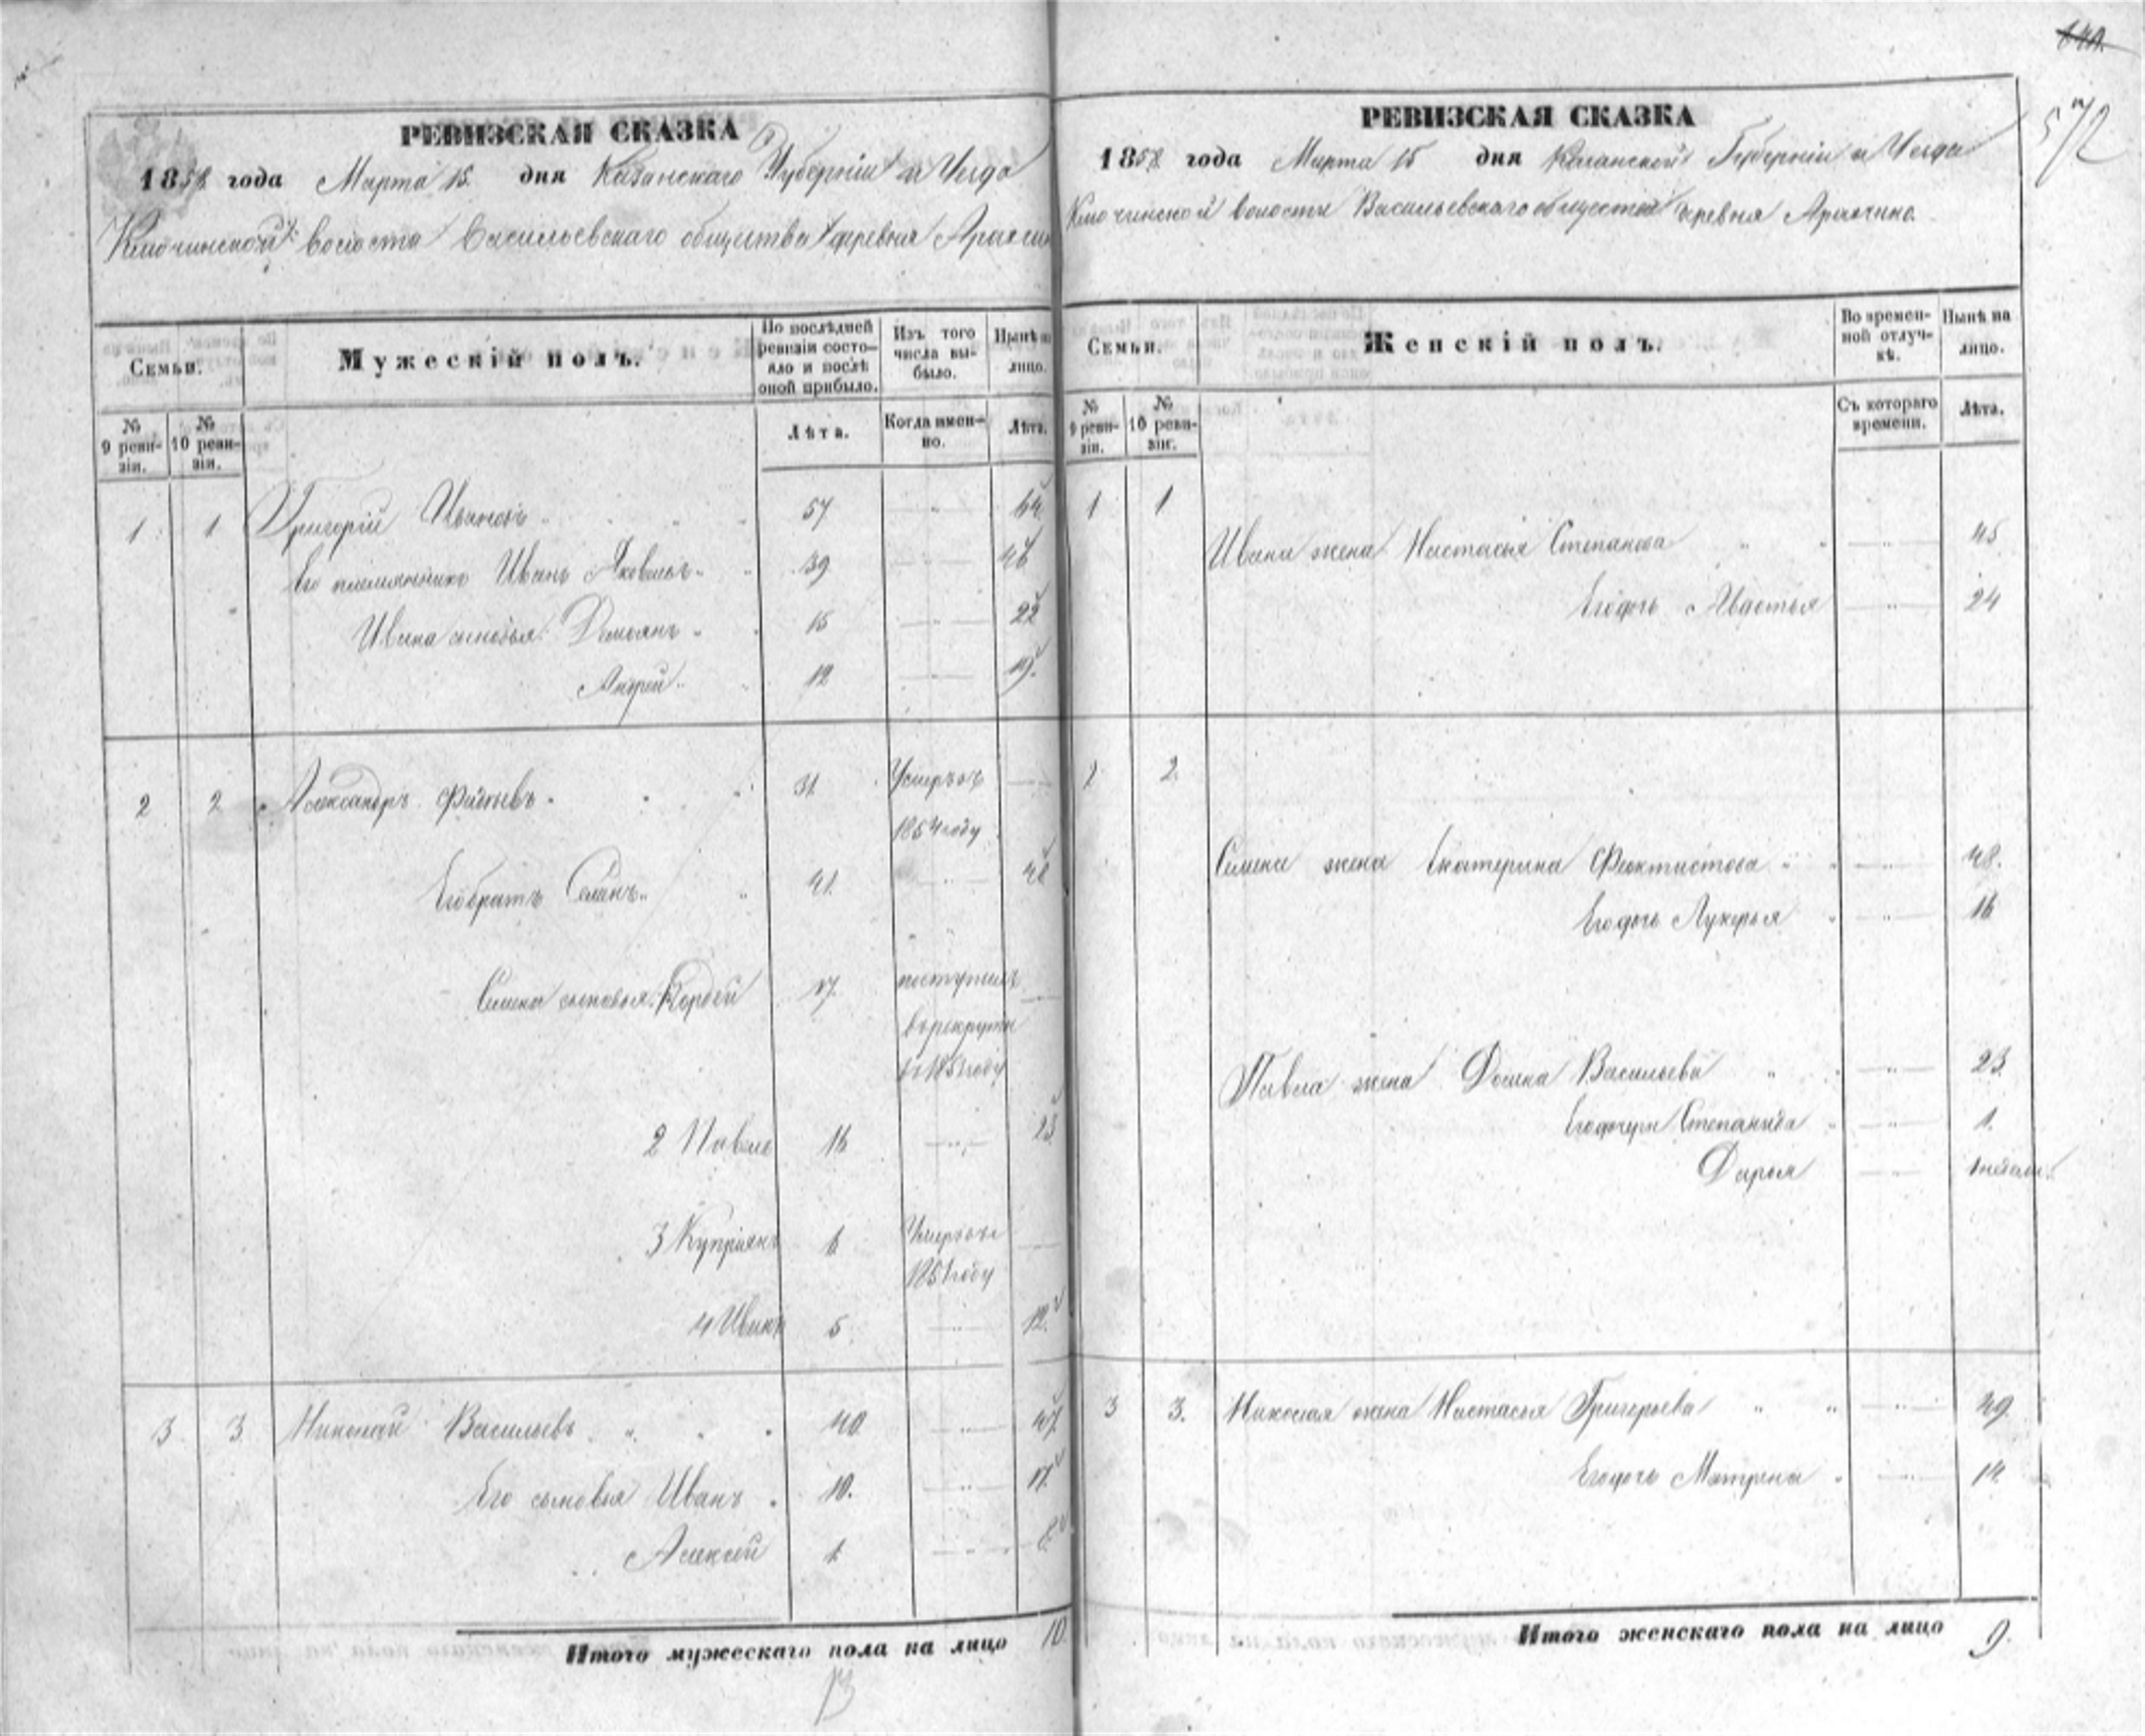 572
РЕВИЗСКАЯ СКАЗКА
1858 года Марта 15 дня Казанскаго Губерніи и Уезда
Ключинской волости Васильевскаго общества деревня
Семьи.
Мужескій полъ.
По послѣдней ревизіи состояло и послѣ оной прибыло.
Изъ того числа выбыло.
Нынѣ на лицо.
№ 9 ревизіи.
№ 10 ревизіи.
Лѣта.
Когда именно.
Лѣта.
1 1 Григорій Ивановъ 57 64
Его племянникъ Иванъ Яковлевъ 39 46
Ивана сыновья Демьянъ 15 22
Андрей 12 19
2 2 Александръ 31 Умеръ въ
1854 году
Его братъ Семенъ 41 48
Семена сыновья Кордей 17 поступилъ
въ рекруты
в 1851 году
2 Павелъ 16 23
3 Купріянъ 6 Умеръ въ
1851 году
4 Иванъ 5 12
3 3 Николай Васильевъ 40 47
Его сыновья Иванъ 10. 17
Алексей 1 8
Итого мужескаго пола на лицо 10
РЕВИЗСКАЯ СКАЗКА
1858 года Марта 15 дня Казанской Губерніи и Уезда
Ключинской волости Васильевскаго общества деревня
Семьи.
Женскій полъ.
Во временной отлучкѣ.
Нынѣ на лицо.
№ 9 ревизіи.
№ 10 ревизіи.
Съ котораго времени.
Лѣта.
1 1
Ивана жена Настасья Степанова 45
Его дочь 24
2 2.
Семена жена Екатерина Феоктистова 48.
Его дочь Лукерья 16
Павла жена Домна Васильева 23.
Его дочери Степанида 1.
Дарья
3 3. Николая жена Настасья Григорьева 49.
Его дочь Матрена 14
Итого женскаго пола на лицо 9.